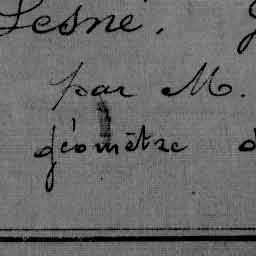 Lesné.
par M.
géomètre d